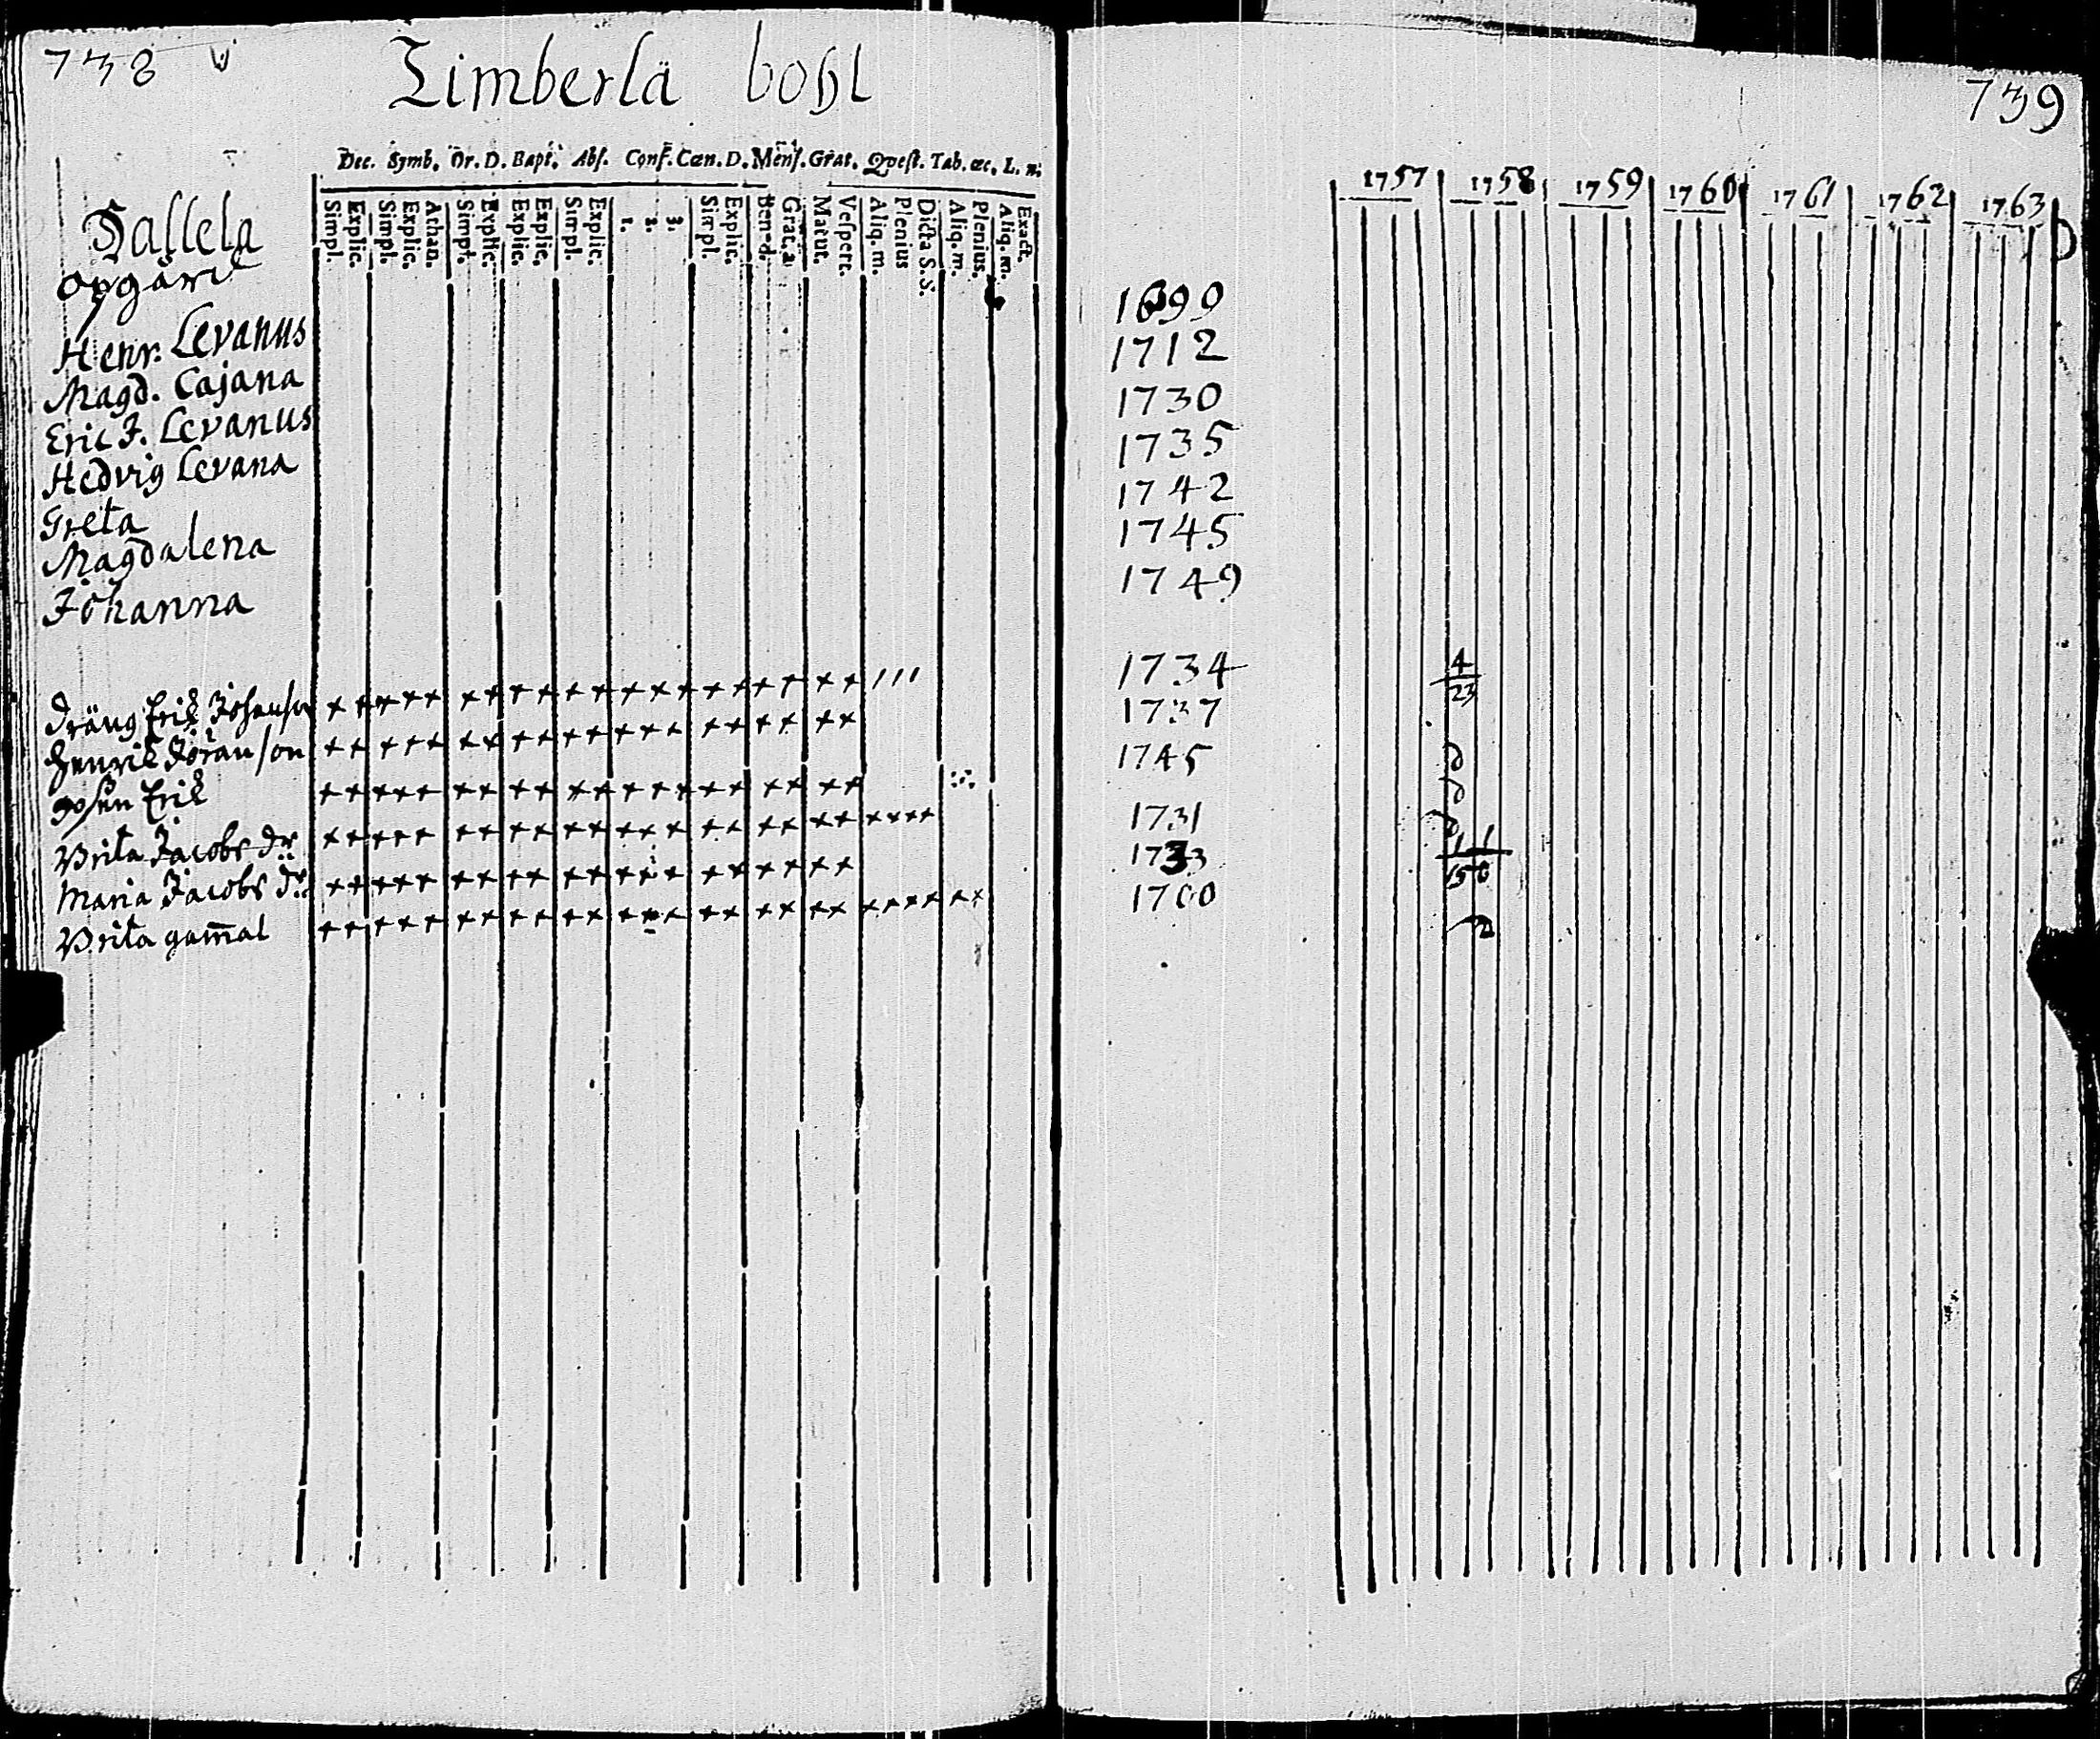 738
Timberla bohl
Dec. Symb. Or. D. Bapt. Abs. Conf. Cœn. D. Mens. Grat. Qvest. Tab. œc. L. n.
Simpl. Explic. Simpl. Explic. Athan. Simpl. Explic. Explic. Explic. Simpl. Explic. 1. 2. 3. Simpl. Explic. Bened. Grat. a Matut. Vespert. Aliq. m. Plenius Dicta S.S. Aliq. m. Plenius. Aliq. m. Exact.
Henr. Levanus
Magd. Cajana
Eric J. Levanus
Hedvig Levana
Greta
Magdalena
Johanna
Dräng Erik Johanson
Henrik Jöranson
Erik
Brita Jacobs dr
Maria Jacobs dr
Brita gam̄al
739
1757 1758 1759 1760 1761 1762 1763
1699
1712
1730
1735
1742
1745
1749
1734 4/23
1737
1745
1731
1733
1700